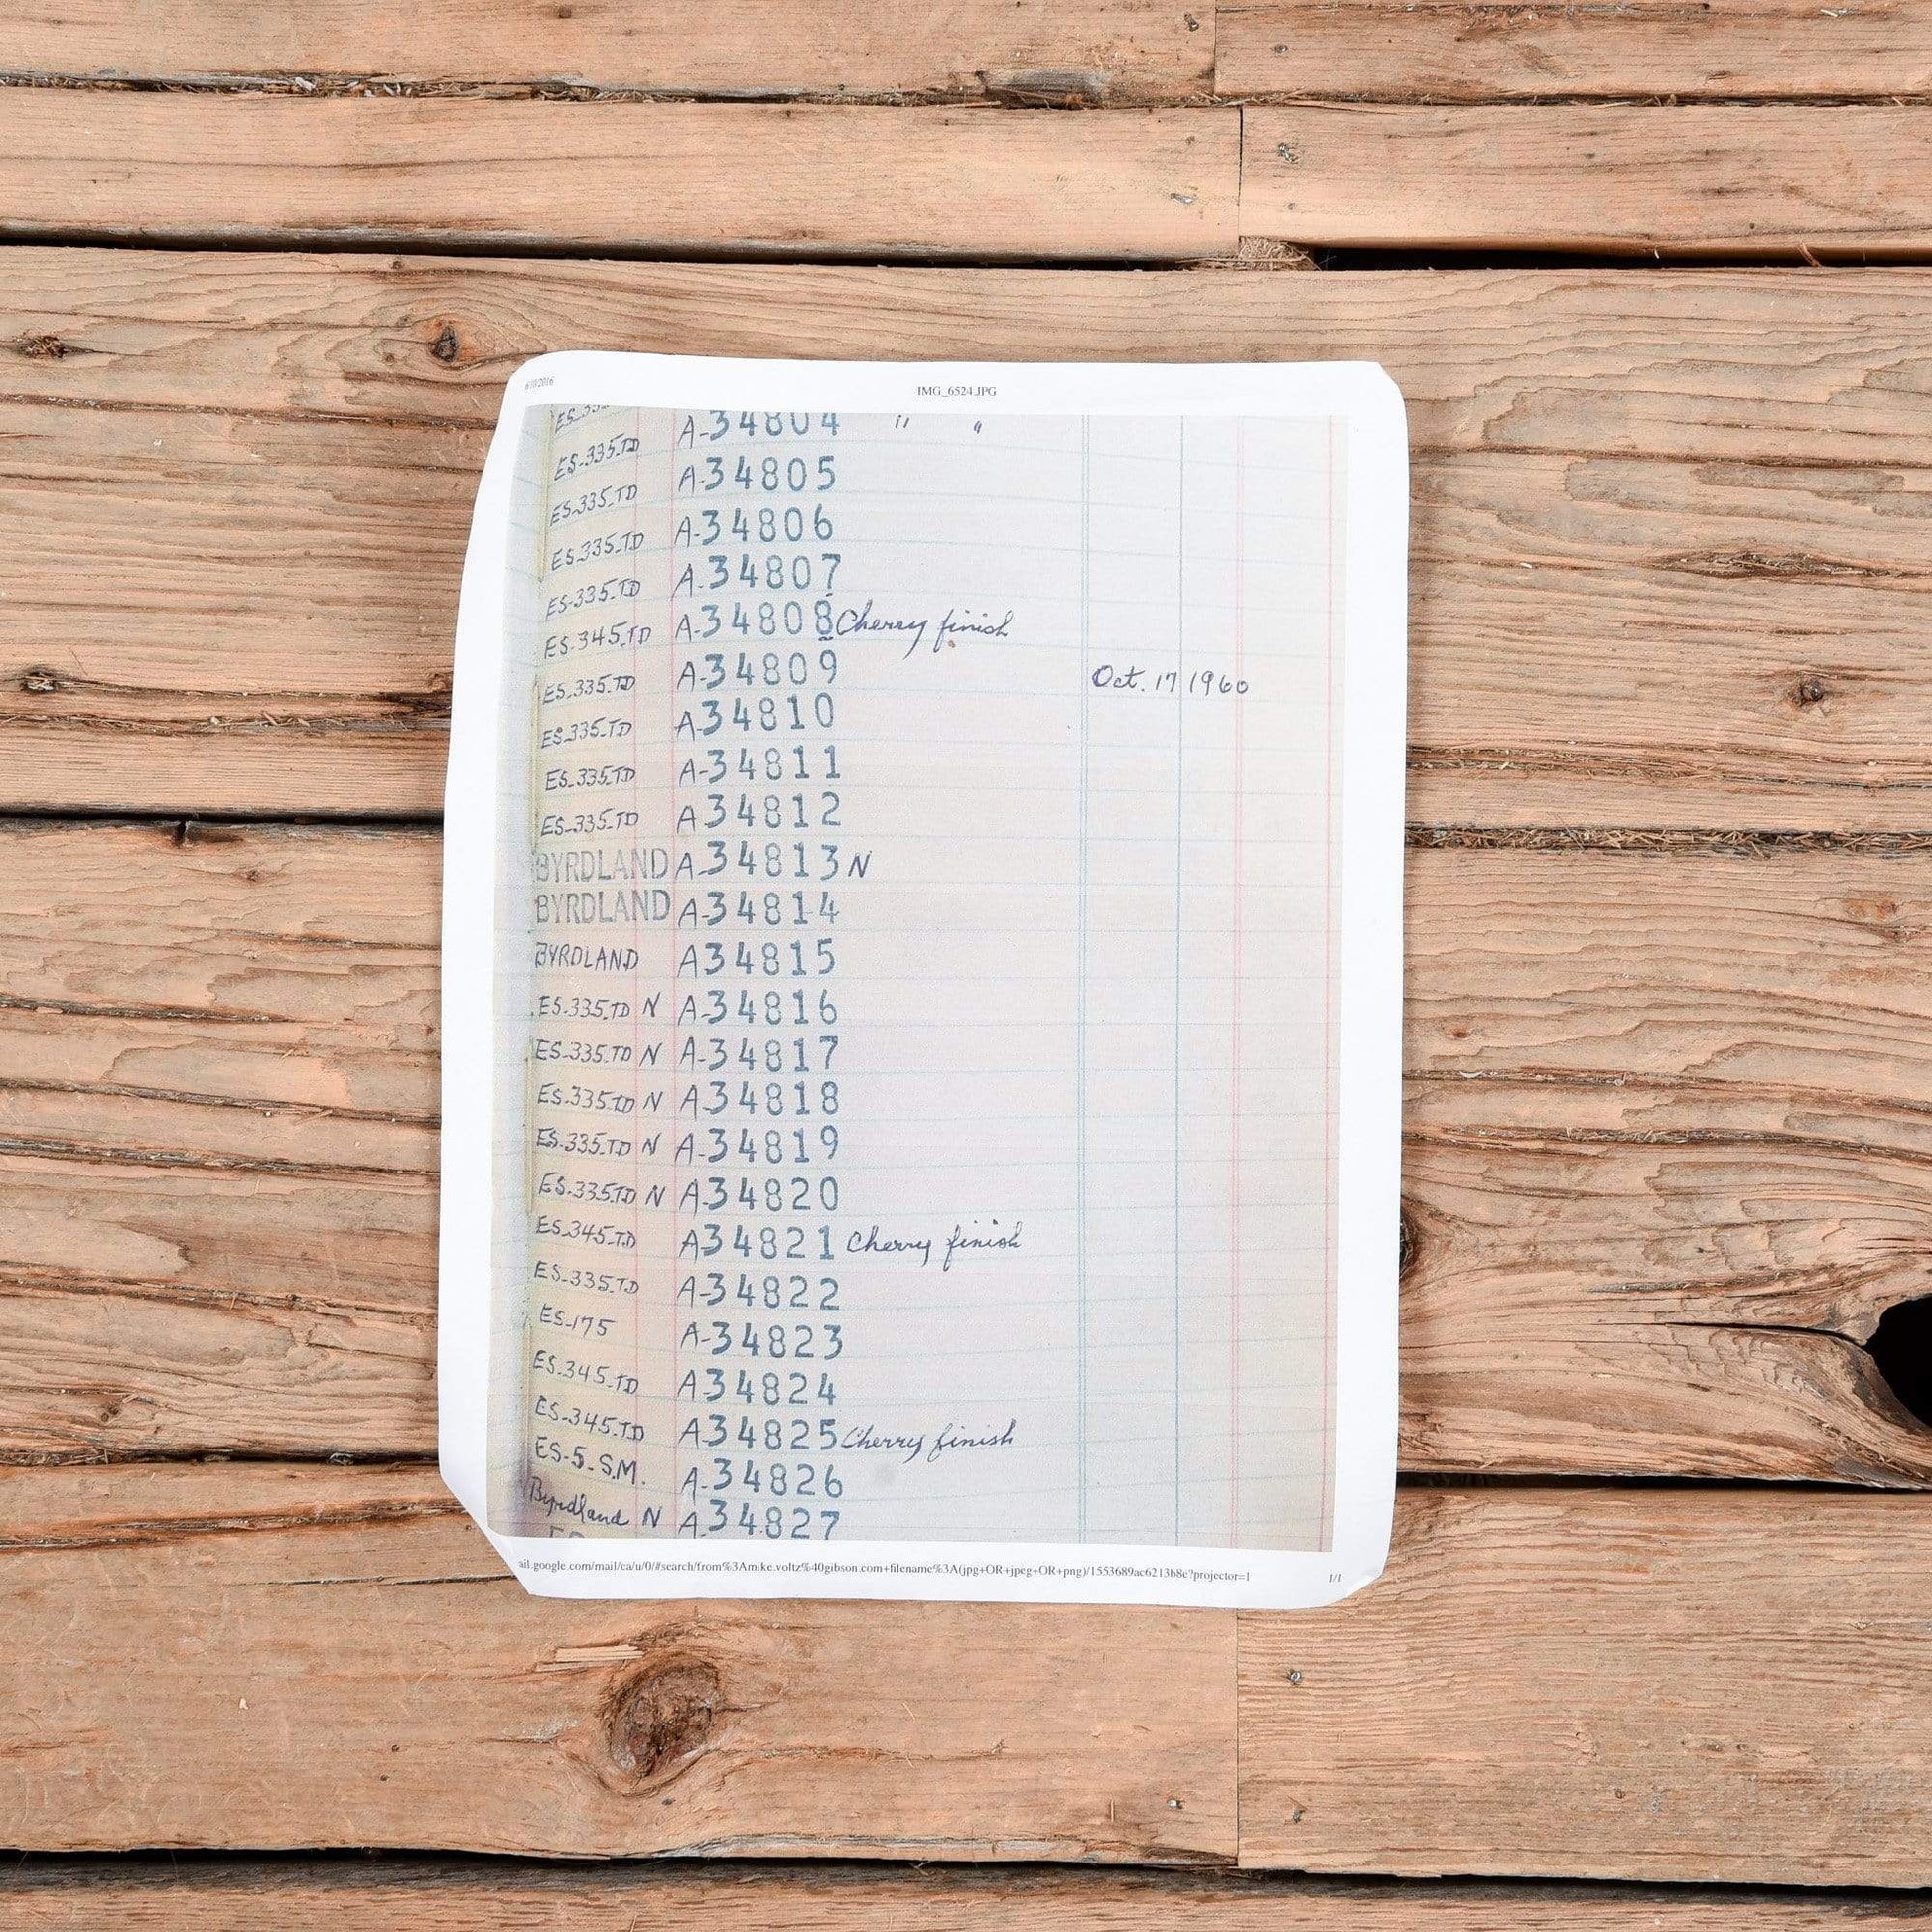 6/10/2016 IMG_6524.JPG
ES-335-TD A-34804 " "
ES-335-TD A-34805
ES-335-TD A-34806
ES-335-TD A-34807
ES-345-TD A-34808 Cherry finish
ES-335-TD A-34809 Oct. 17 1960
ES-335-TD A-34810
ES-335-TD A-34811
ES-335-TD A 34812
BYRDLAND A-34813 N
BYRDLAND A-34814
BYRDLAND A34815
ES-335-TD N A-34816
ES-335-TD N A-34817
ES-335-TD N A-34818
ES-335-TD N A-34819
ES-335-TD N A-34820
ES-345-TD A34821 Cherry finish
ES-335-TD A-34822
ES-175 A-34823
ES-345-TD A-34824
ES-345-TD A34825 Cherry finish
ES-5-S.M. A-34826
Byrdland N A-34827
ail.google.com/mail/ca/u/0/#search/from%3Amike.voltz%40gibson.com+filename%3A(jpg+OR+jpeg+OR+png)/1553689ac6213b8e?projector=1 1/1